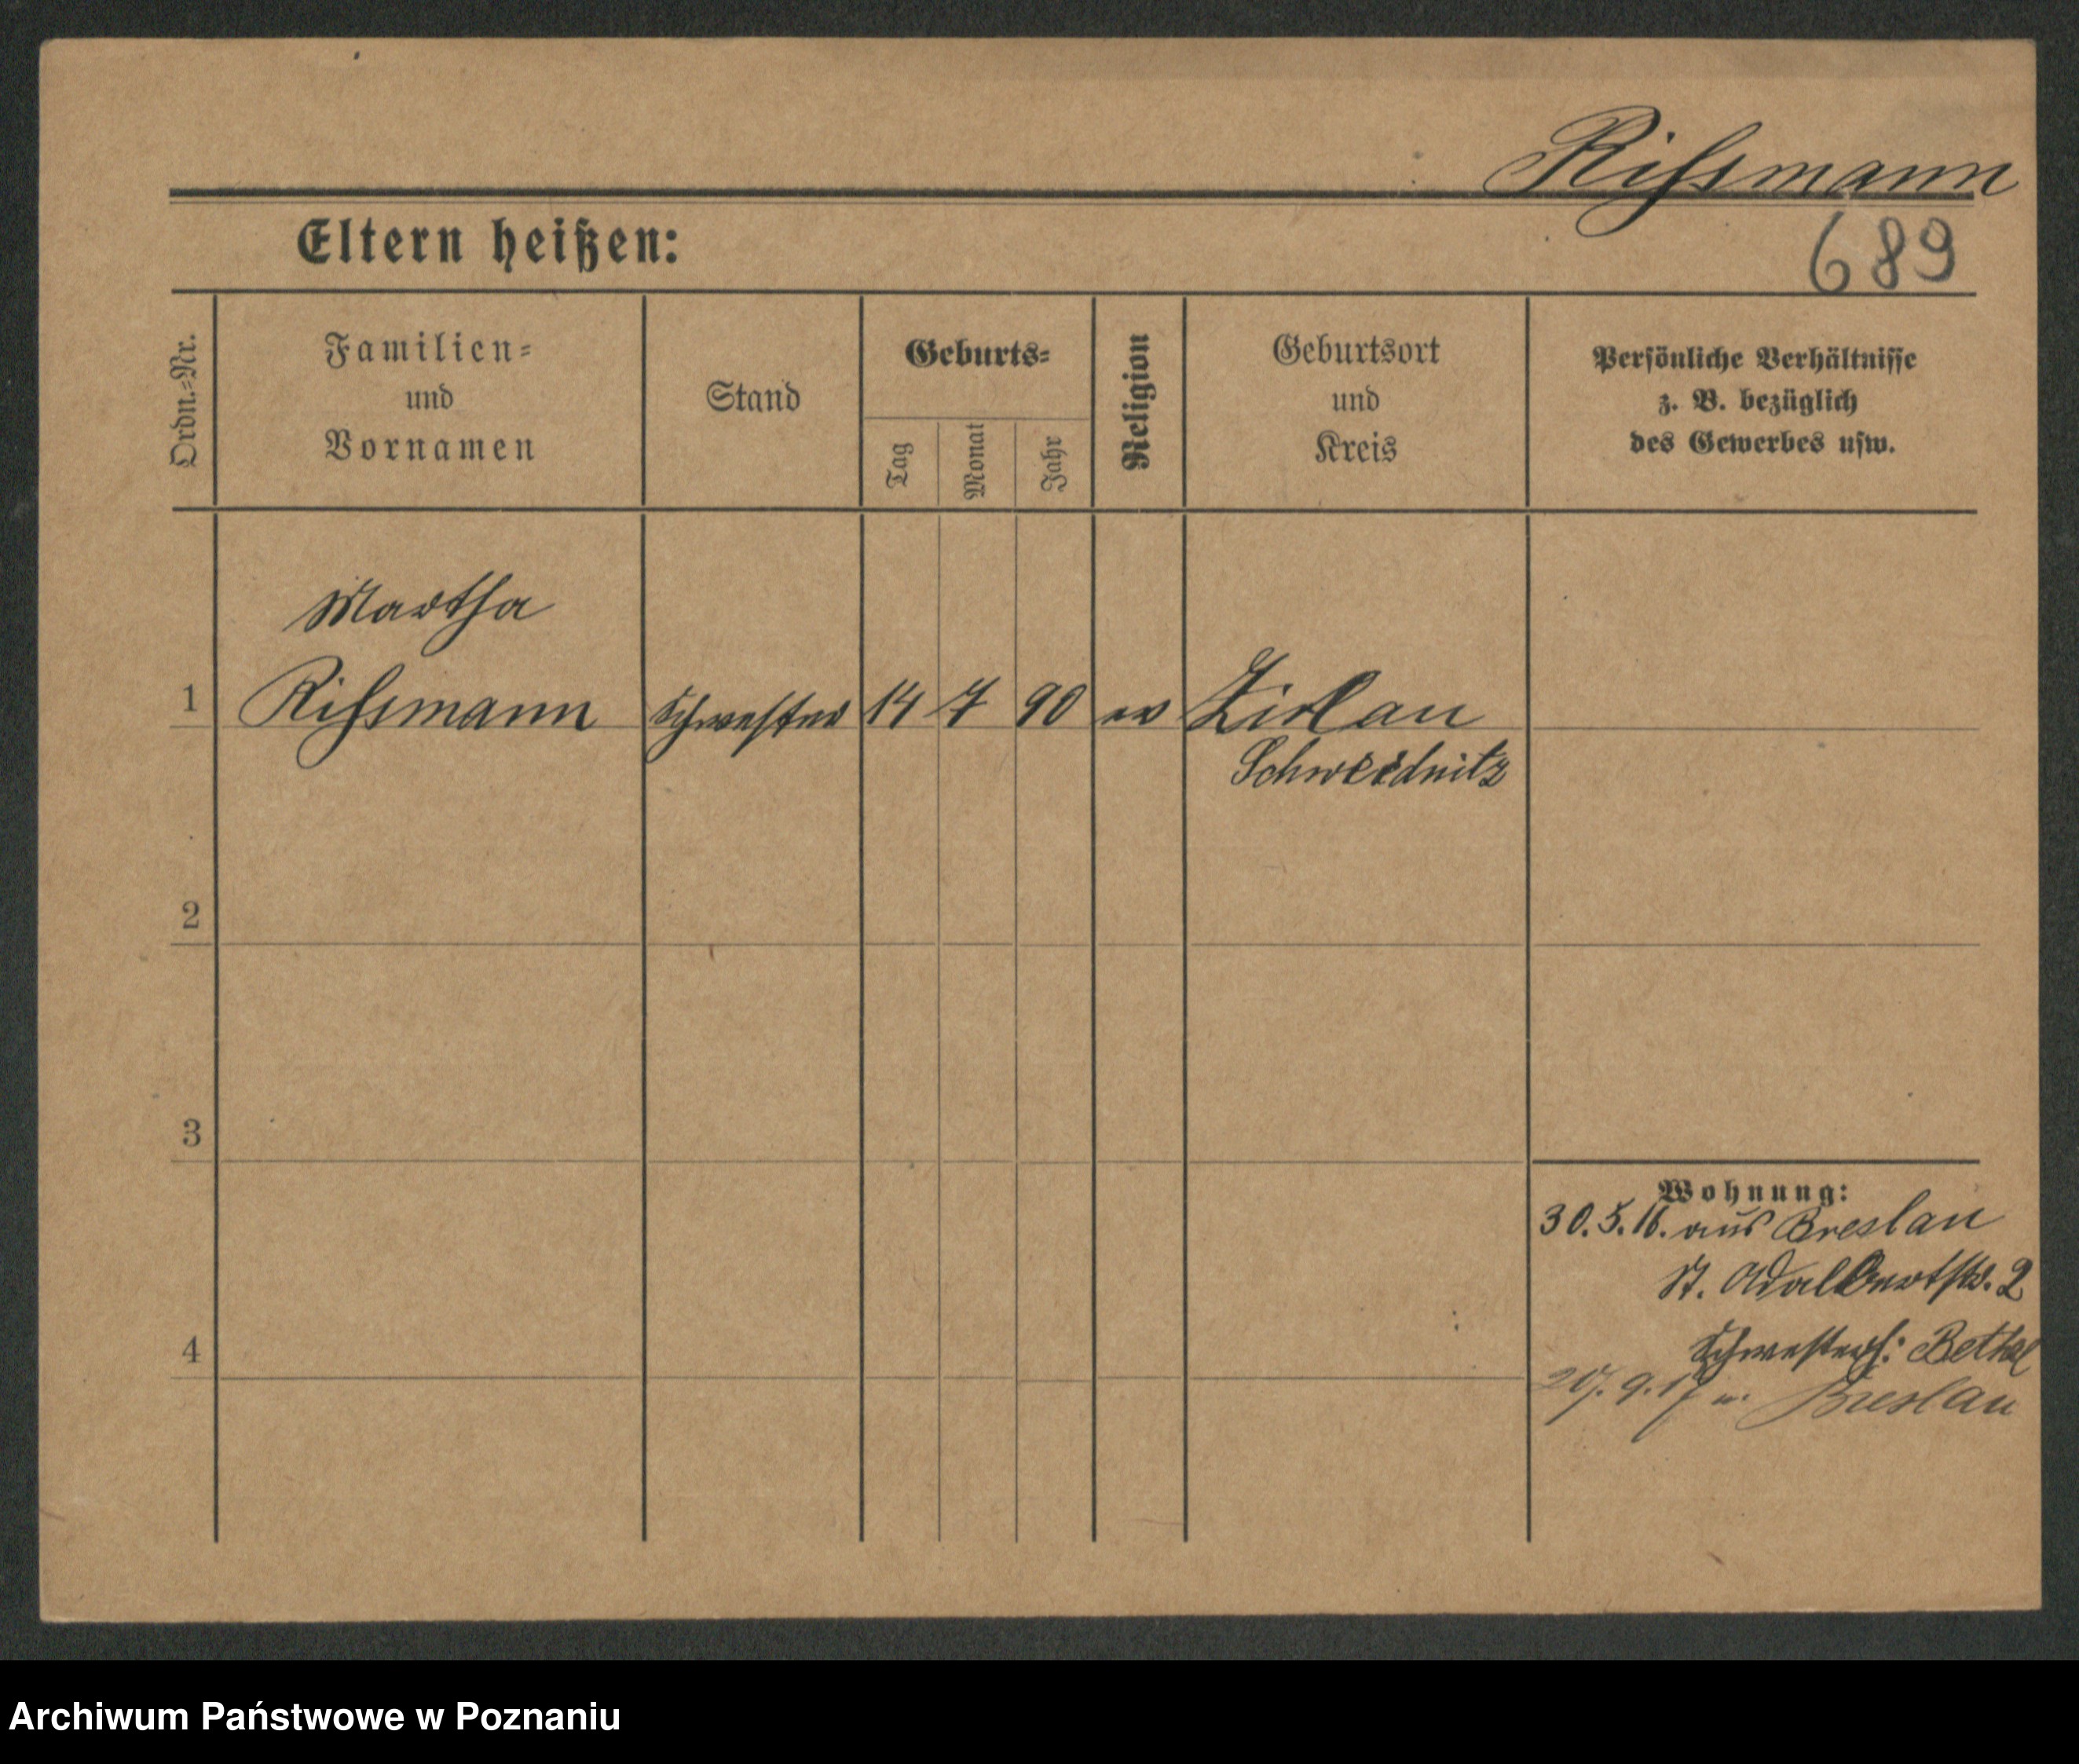 Rissmann
Eltern heißen:
689
Ordn.=Nr.
Familien=
und
Vornamen
Stand
Geburts=
Tag
Monat
Jahr
Religion
Geburtsort
und
Kreis
Persönliche Verhältnisse
z. B. bezüglich
des Gewerbes usw.
Martha
1 Rissmann Schwester 14 7 90 ev Zirlau
Schweidnitz
2
3
Wohnung:
30.5.16. aus Breslau
St. Adalbertstr. 2
Schwesterh: Bethel
4
9.17 n. Breslau
Archiwum Państwowe w Poznaniu